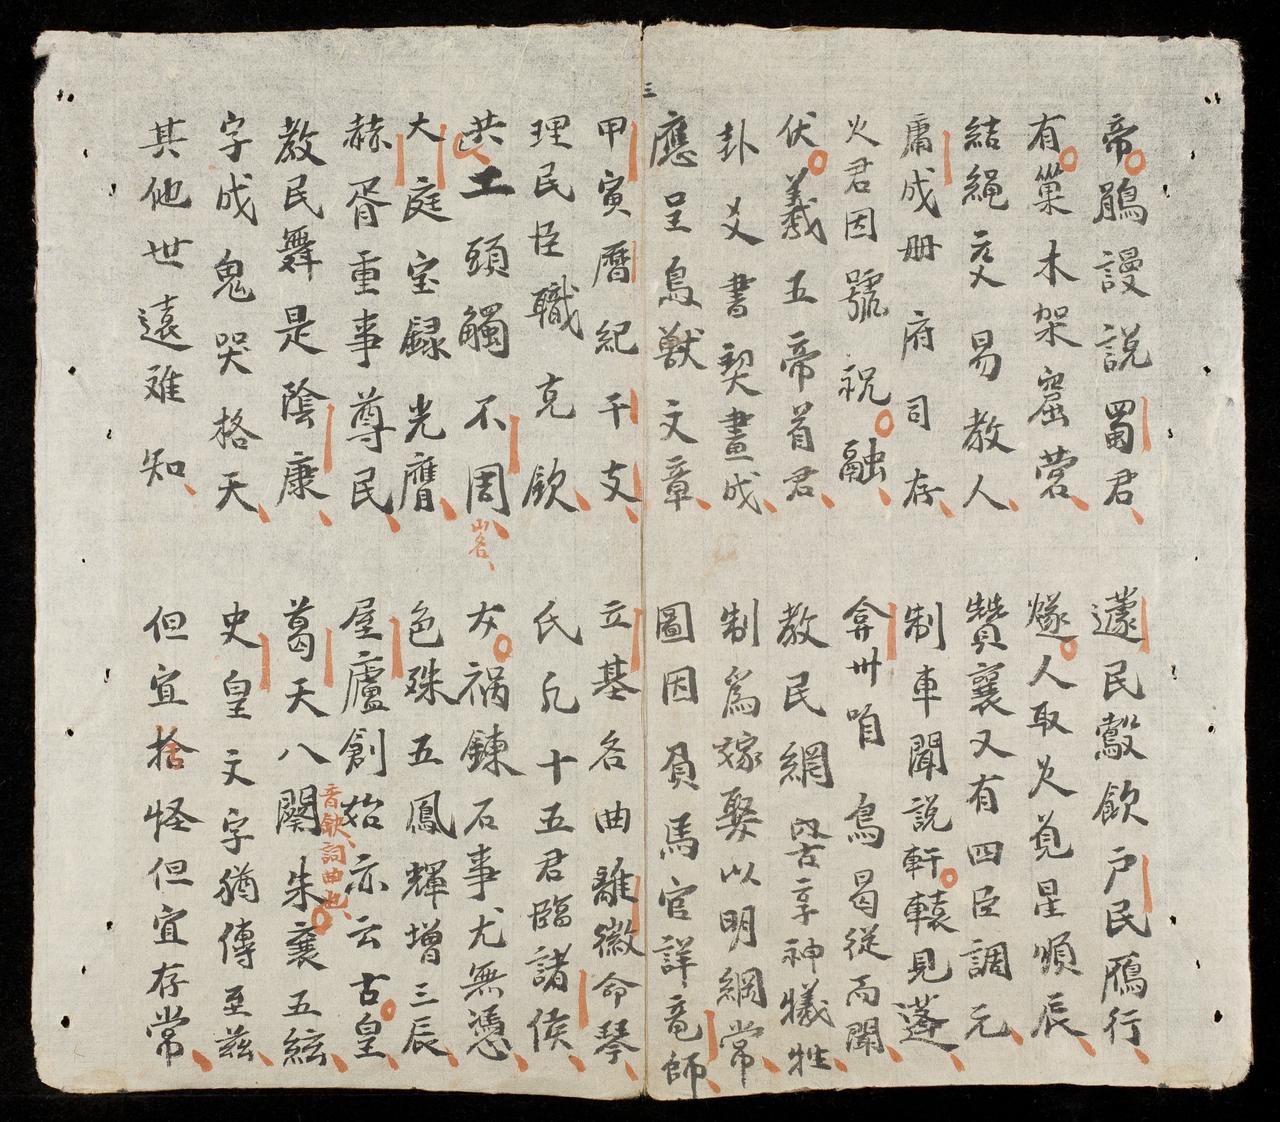 帝鵑謾說蜀君
有巢木架窟營
結繩爻易教人
庸成冊府司存
火君因號祝融
伏羲五帝首君
卦爻書契畫成
應呈鳥獸文章
蘧民鷇飲戶民鴈行
燧人取火覓星順辰
贊襄又有四臣調元
制車聞說軒轅見蓬
弇州咱鳥曷從而聞
教民網罟享神犧牲
制為嫁娶以明綱常
圖因負馬官詳竜師
三
甲寅曆紀干支
理民臣職克欽
共工頭觸不周
山名
大庭室録光膺
赫胥重事尊民
教民舞是陰康
字成鬼哭格天
其他世遠难知
立基名曲離徽命琴
氏凡十五君臨諸侯
女禍鍊石事尤無憑
色殊五鳳輝增三辰
屋廬創始亦云古皇
音缺詞曲也
葛天八闋朱襄五絃
史皇文字猶傳至茲
但宜捨怪但宜存常